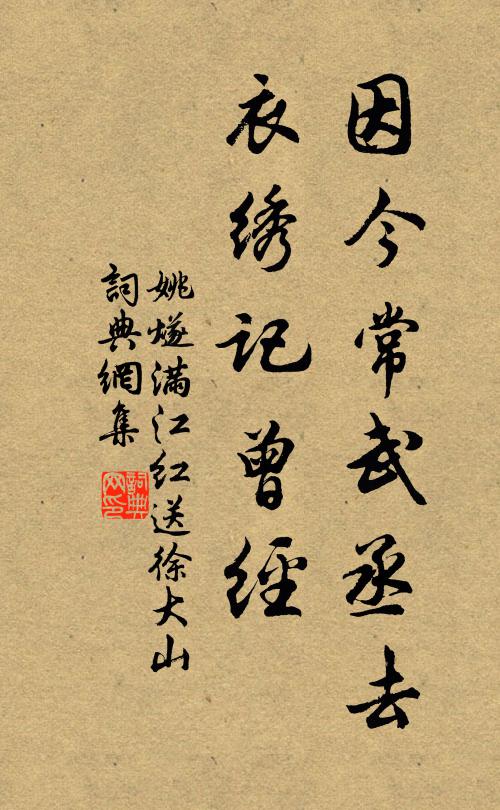 因今常武丞去
衣绣記曾經
姚燧满江红送徐大山
詞典網集
詞典网印